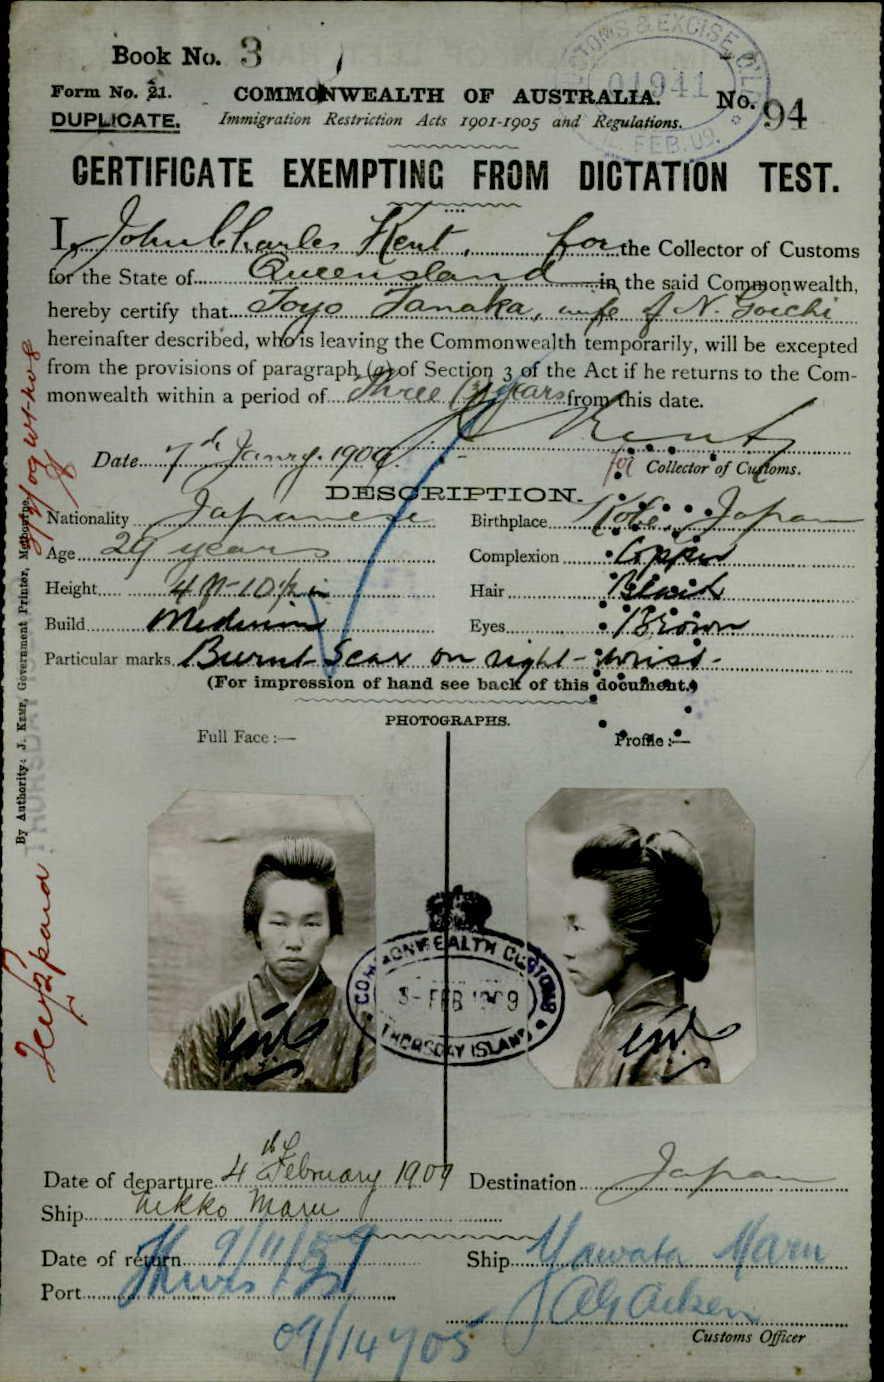 Book No. 3
Form No. 21.
COMMONWEALTH OF AUSTRALIA.
No. 94
DUPLICATE.
Immigration Restriction Acts 1901-1905 and Regulations.
CUSTOMS & EXCISE
01941
FEB. 09.
CERTIFICATE EXEMPTING FROM DICTATION TEST.
I, John Charles Kent, for the Collector of Customs
for the State of Queensland in the said Commonwealth,
hereby certify that Toyo Tanaka, wife of N. Goichi
hereinafter described, who is leaving the Commonwealth temporarily, will be excepted
from the provisions of paragraph (a) of Section 3 of the Act if he returns to the Com-
monwealth within a period of Three (3) years from this date.
J. C. Kent
Date 7th Janry. 1909.
for Collector of Customs.
DESCRIPTION.
Nationality Japanese
Birthplace Kobe, Japan
Age 29 years
Complexion Copper
Height 4 ft-10½ in
Hair Black
Build Medium
Eyes Brown
Particular marks Burnt Scar on right-wrist-
(For impression of hand see back of this document.)
PHOTOGRAPHS.
Full Face :—
Profile :—
COMMONWEALTH CUSTOMS
3- FEB 1909
THURSDAY ISLAND
Date of departure 4th February 1909
Destination Japan
Ship Nikko Maru
Date of return 9/11/09
Ship Yawata Maru
Port Thurs. Isd
Aitken
Customs Officer
09/14705
By Authority: J. Kemp, Government Printer, Melbourne.